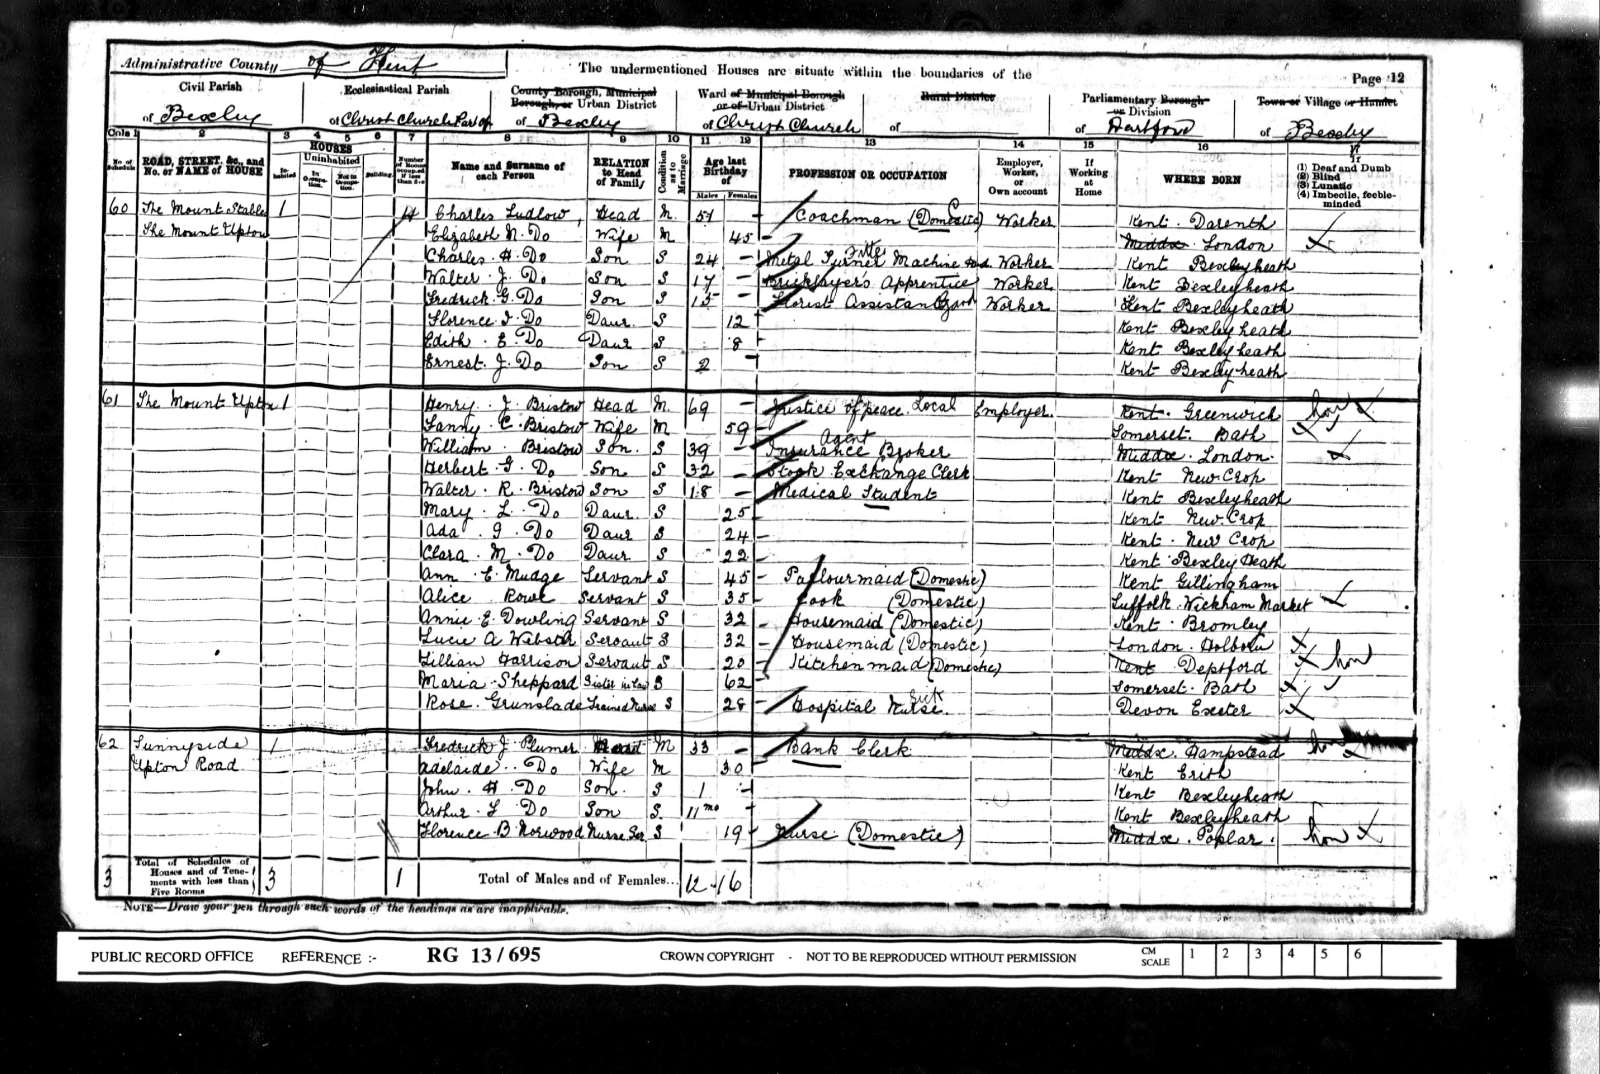 Administrative County of Kent
The undermentioned Houses are situate within the boundaries of the
Page 12
Civil Parish of Bexley
Ecclesiastical Parish of Christ Church Par of
County Borough, Municipal Borough, or Urban District of Bexley
Ward of Municipal Borough or of Urban District of Christ Church
Rural District of
Parliamentary Borough or Division of Dartford
Town or Village or Hamlet of Bexley
Cols 1 2 3 4 5 6 7 8 9 10 11 12 13 14 15 16 17
No. of Schedule
ROAD, STREET, &c., and No. or NAME of HOUSE
HOUSES
Inhabited
Uninhabited
In Occupation.
Not in Occupation.
Building
Number of Rooms occupied if less than five
Name and Surname of each Person
RELATION to Head of Family
Condition as to Marriage
Age last Birthday of
Males Females
PROFESSION OR OCCUPATION
Employer, Worker, or Own account
If Working at Home
WHERE BORN
If (1) Deaf and Dumb (2) Blind (3) Lunatic (4) Imbecile, feeble-minded
60 The Mount Stables 1 4 Charles Ludlow, Head M. 51 – Coachman (Domestic) Worker Kent. Darenth
The Mount Upton Elizabeth N. Do Wife M 45 – Middx London
Charles H. Do Son S 24 – Metal Turner Fitter Machine Worker Kent Bexleyheath
Walter. J. Do Son S 17 – Bricklayer's Apprentice Worker Kent Bexleyheath
Fredrick. G. Do Son S 15 – Florist Assistant Worker Kent Bexleyheath
Florence. I. Do Daur. S 12 Kent Bexleyheath
Edith. E. Do Daur S 8 Kent Bexleyheath
Ernest. J. Do Son S 2 – Kent Bexley-heath
61 The Mount Upton 1 Henry. J. Bristow Head M. 69 – Justice of peace. Local Employer. Kent. Greenwich
Fanny C. Bristow Wife M 59 – Somerset. Bath
William. Bristow Son. S 39 – Insurance Agent Broker Middx. London.
Herbert G. Do Son S 32 – Stock Exchange Clerk Kent New Crop
Walter. R. Bristow Son S 18 – Medical Student Kent Bexleyheath
Mary. L. Do Daur. S 25 – Kent New Crop
Ada. G. Do Daur S 24 – Kent. New Crop
Clara. M. Do Daur S 22 – Kent Bexley Heath
Ann. E. Mudge Servant S 45 – Parlourmaid (Domestic) Kent Gillingham
Alice Rowe Servant S 35 – Cook (Domestic) Suffolk. Wickham Market
Annie E. Dowling Servant S 32 – Housemaid (Domestic) Kent. Bromley
Lucie A Webster Servant S 32 – Housemaid (Domestic) London. Holborn
Lillian Harrison Servant S 20 – Kitchenmaid (Domestic) Kent Deptford
Maria. Sheppard Sister in Law S 62 – Somerset. Bath
Rose. Grunslade Trained Nurse S 28 – Hospital Nurse. Sick Devon Exeter
62 Sunnyside 1 Fredrick J. Plumer Head M 33 – Bank Clerk Middx Hampstead
Upton Road Adelaide. Do Wife M 30 Kent Erith
John. H. Do Son. S 1 Kent Bexleyheath
Arthur. L Do Son S. 11 mo Kent Bexleyheath
Florence. B. Norwood Nurse Ser. S 19 – Nurse (Domestic) Middx. Poplar.
3 Total of Schedules of Houses and of Tenements with less than Five Rooms 3 1 Total of Males and of Females... 12 16
NOTE—Draw your pen through such words of the headings as are inapplicable.
PUBLIC RECORD OFFICE REFERENCE :- RG 13 / 695 CROWN COPYRIGHT - NOT TO BE REPRODUCED WITHOUT PERMISSION CM SCALE 1 2 3 4 5 6